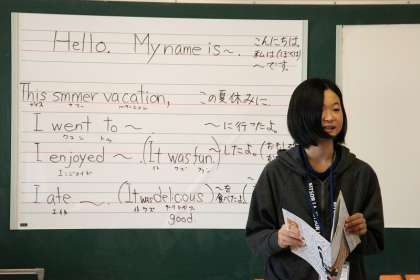 Hello. My name is ～.
こんにちは。
私は(ぼくは)
～です。
This smmer vacation,
この夏休みに
I went to ～
～に行ったよ。
I enjoyed ～
(It was fun.)
～したよ。
エンジョイド
I ate ～.
(It was delcous)
～を
食べたよ
エイト
good